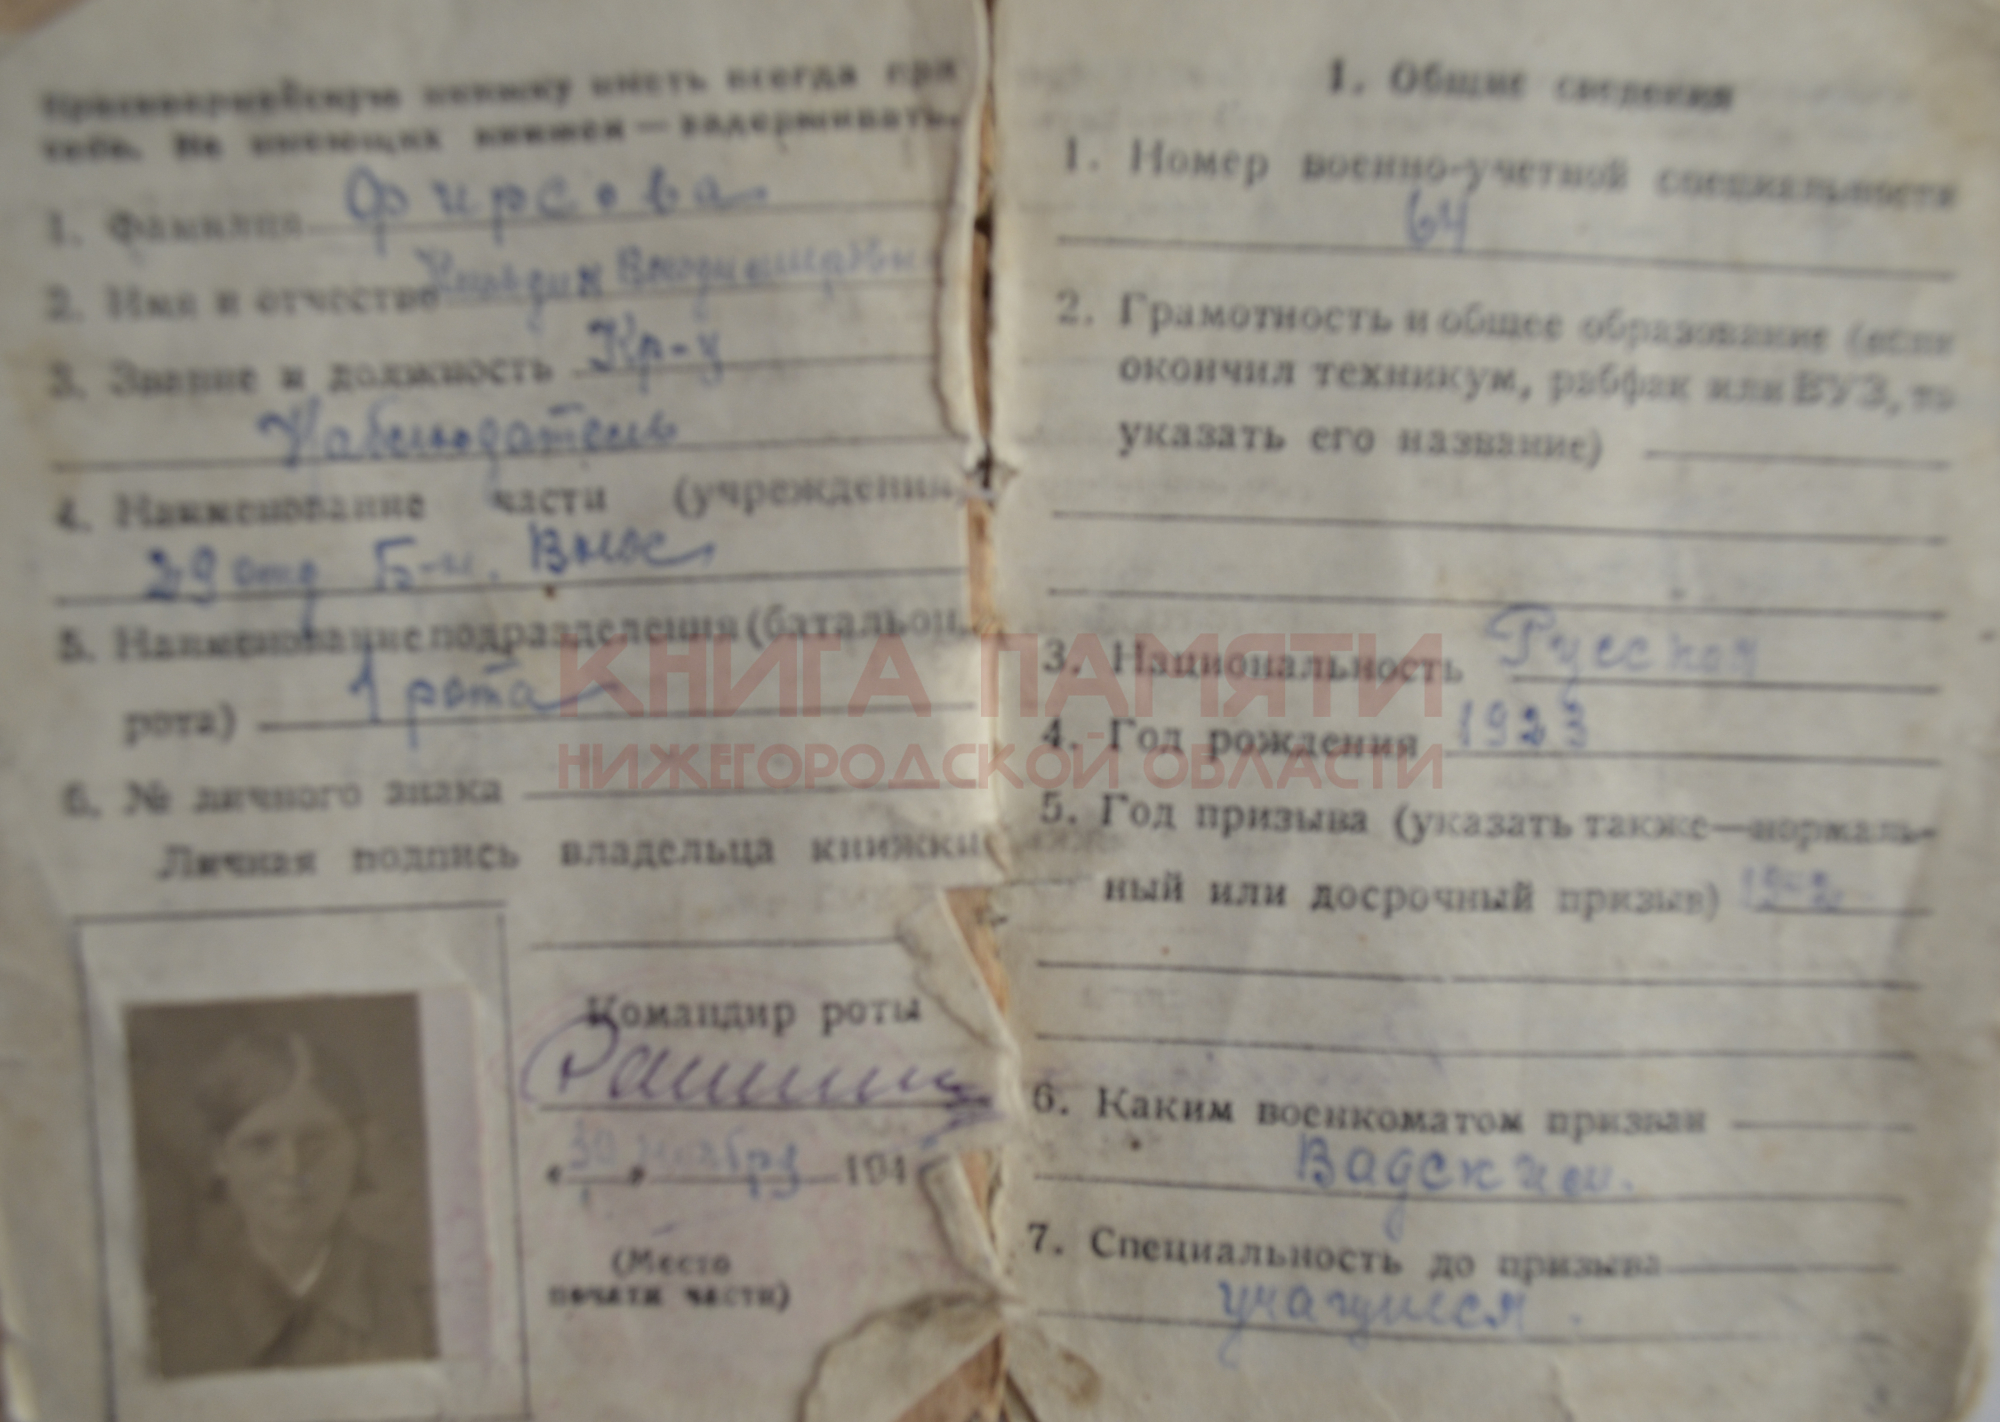 Красноармейскую книжку иметь всегда при
себе. Не имеющих книжки — задерживать.
1. Фамилия Фирсова
2. Имя и отчество
3. Звание и должность Кр-ц
Наблюдатель
4. Наименование части (учреждения
29 отд Б-н. Внос
5. Наименование подразделения (батальон,
1 рота
рота)
6. № личного знака
Личная подпись владельца книжки
Командир роты
« 30 » ноября 194
(Место
печати части)
1. Общие сведения
1. Номер военно-учетной специальности
64
2. Грамотность и общее образование (если
окончил техникум, рабфак или ВУЗ, то
указать его название)
3. Национальность Русская
4. Год рождения 1923
5. Год призыва (указать также—нормаль-
ный или досрочный призыв) 1942
6. Каким военкоматом призван
Вадским.
7. Специальность до призыва
учащийся.
КНИГА ПАМЯТИ
НИЖЕГОРОДСКОЙ ОБЛАСТИ